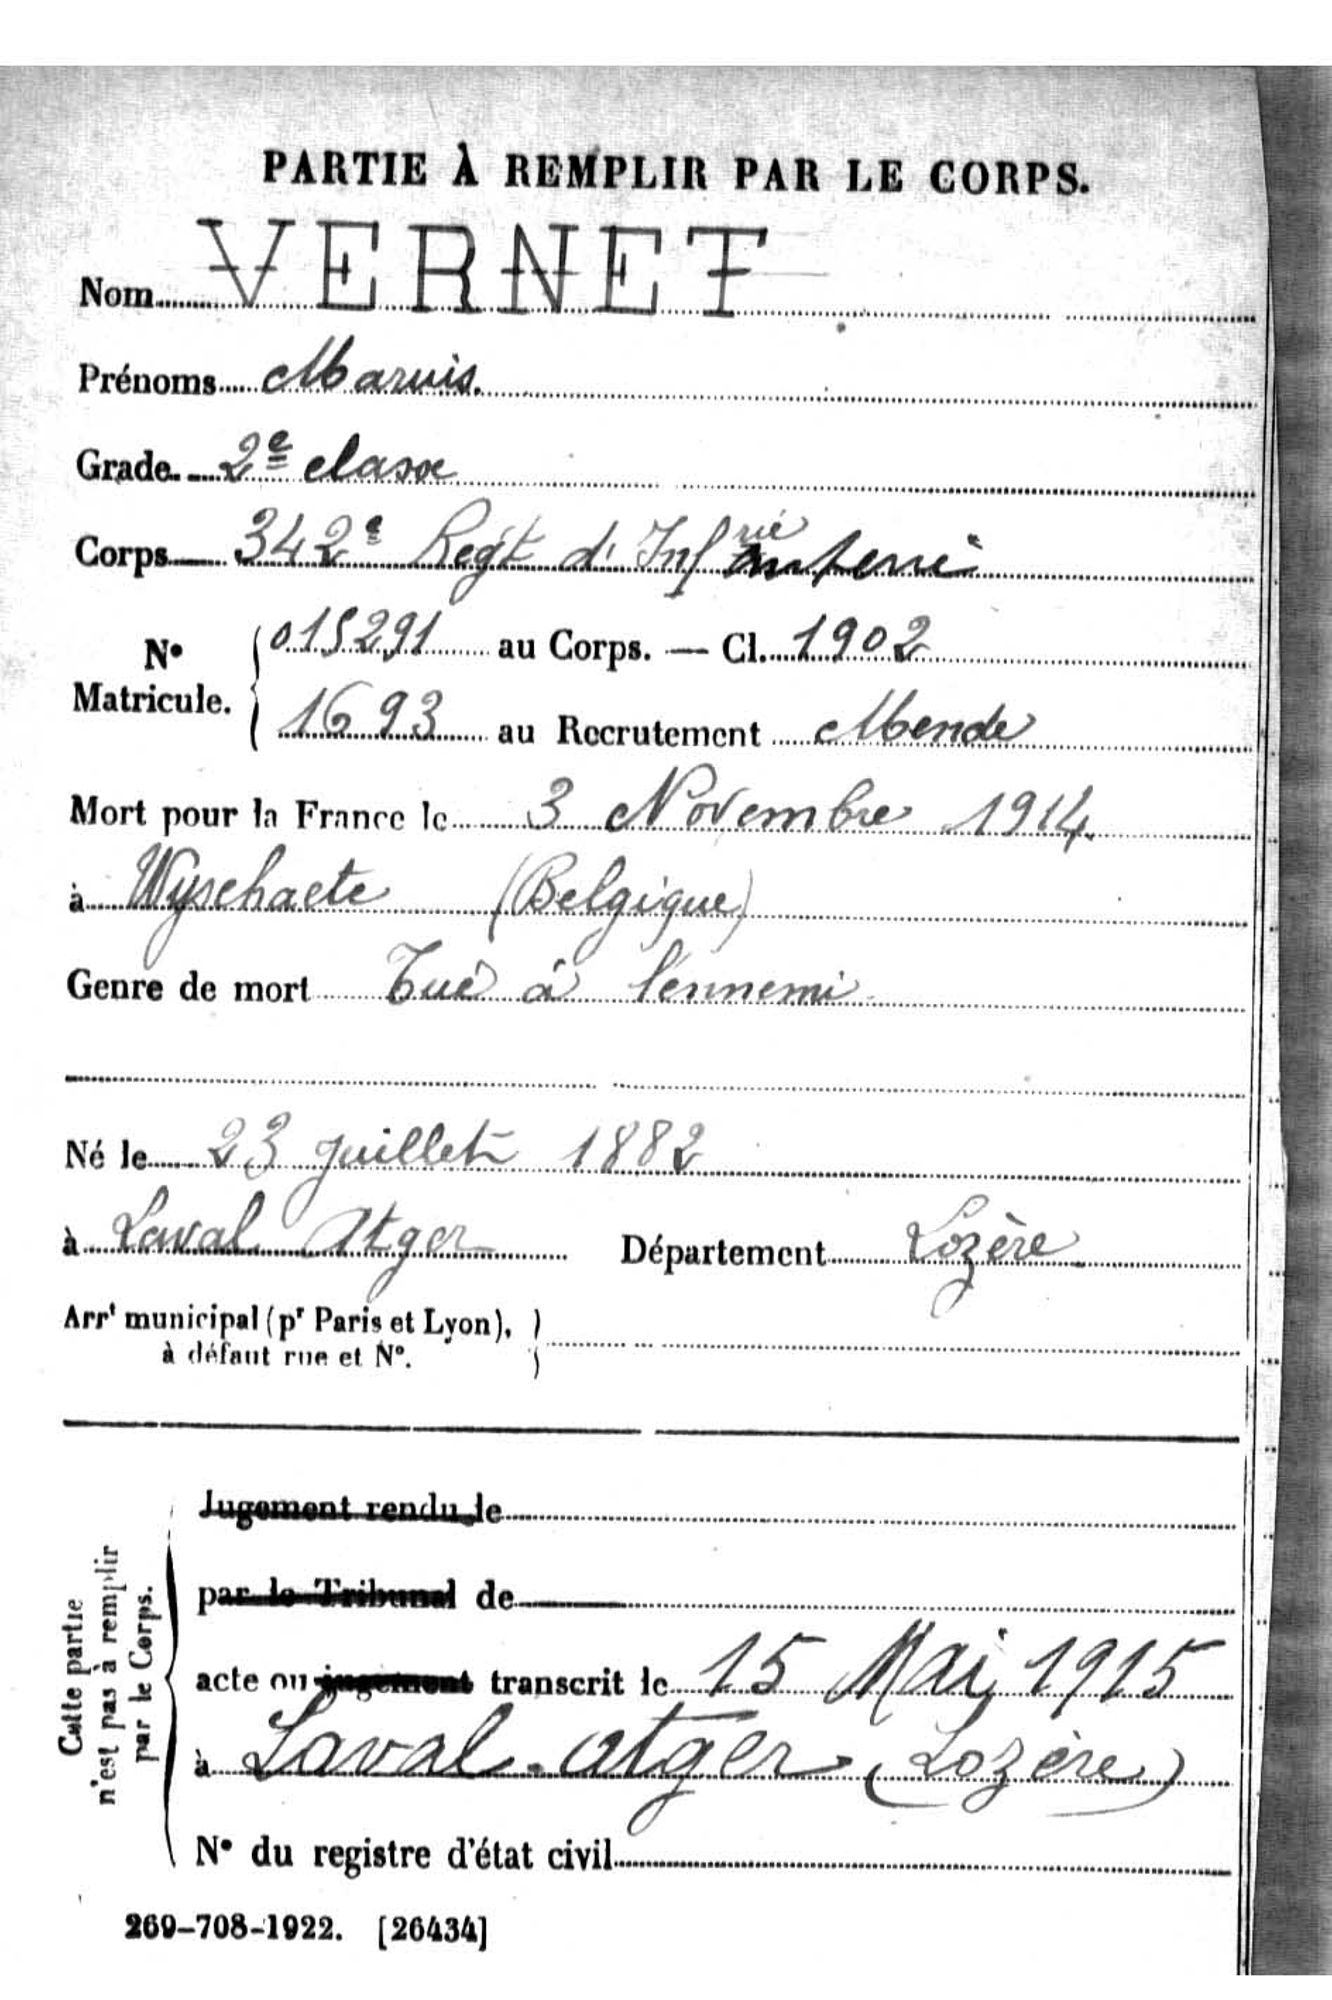 PARTIE À REMPLIR PAR LE CORPS.
Nom VERNET
Prénoms Maruis.
Grade 2e classe
Corps 342e Regt d'Infanterie
No Matricule. 015291 au Corps. — Cl. 1902
1693 au Recrutement Mende
Mort pour la France le 3 Novembre 1914.
à Wyschaete (Belgique)
Genre de mort Tué à l'ennemi
Né le 23 juillet 1882
à Laval Atger Département Lozère
Arrt municipal (pr Paris et Lyon),
à défaut rue et No.
Cette partie
n'est pas à remplir
par le Corps.
Jugement rendu le
par le Tribunal de
acte ou jugement transcrit le 15 Mai 1915
à Laval-Atger (Lozère)
No du registre d'état civil
269-708-1922. [26434]